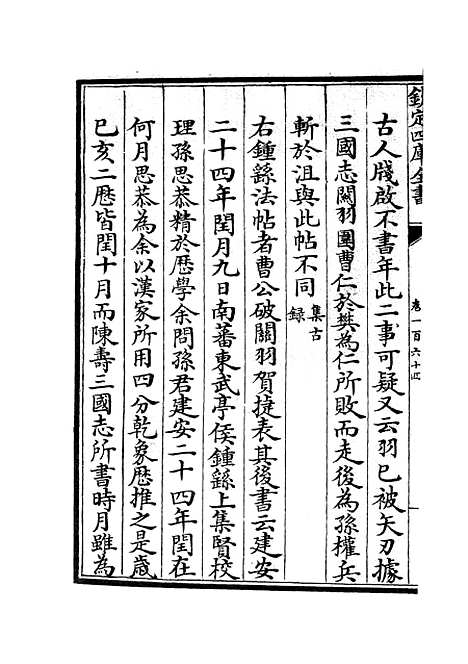 欽定四庫全書
卷一百六十四
古人牋啟不書年此二事可疑又云羽已被矢刃據
三國志關羽圍曹仁於樊為仁所敗而走後為孫權兵
斬於沮與此帖不同集古錄
右鍾繇法帖者曹公破關羽賀捷表其後書云建安
二十四年閏月九日南蕃東武亭侯鍾繇上集賢校
理孫思恭精於歴學余問孫君建安二十四年閏在
何月思恭為余以漢家所用四分乾象歴推之是歳
己亥二歴皆閏十月而陳壽三國志所書時月雖為